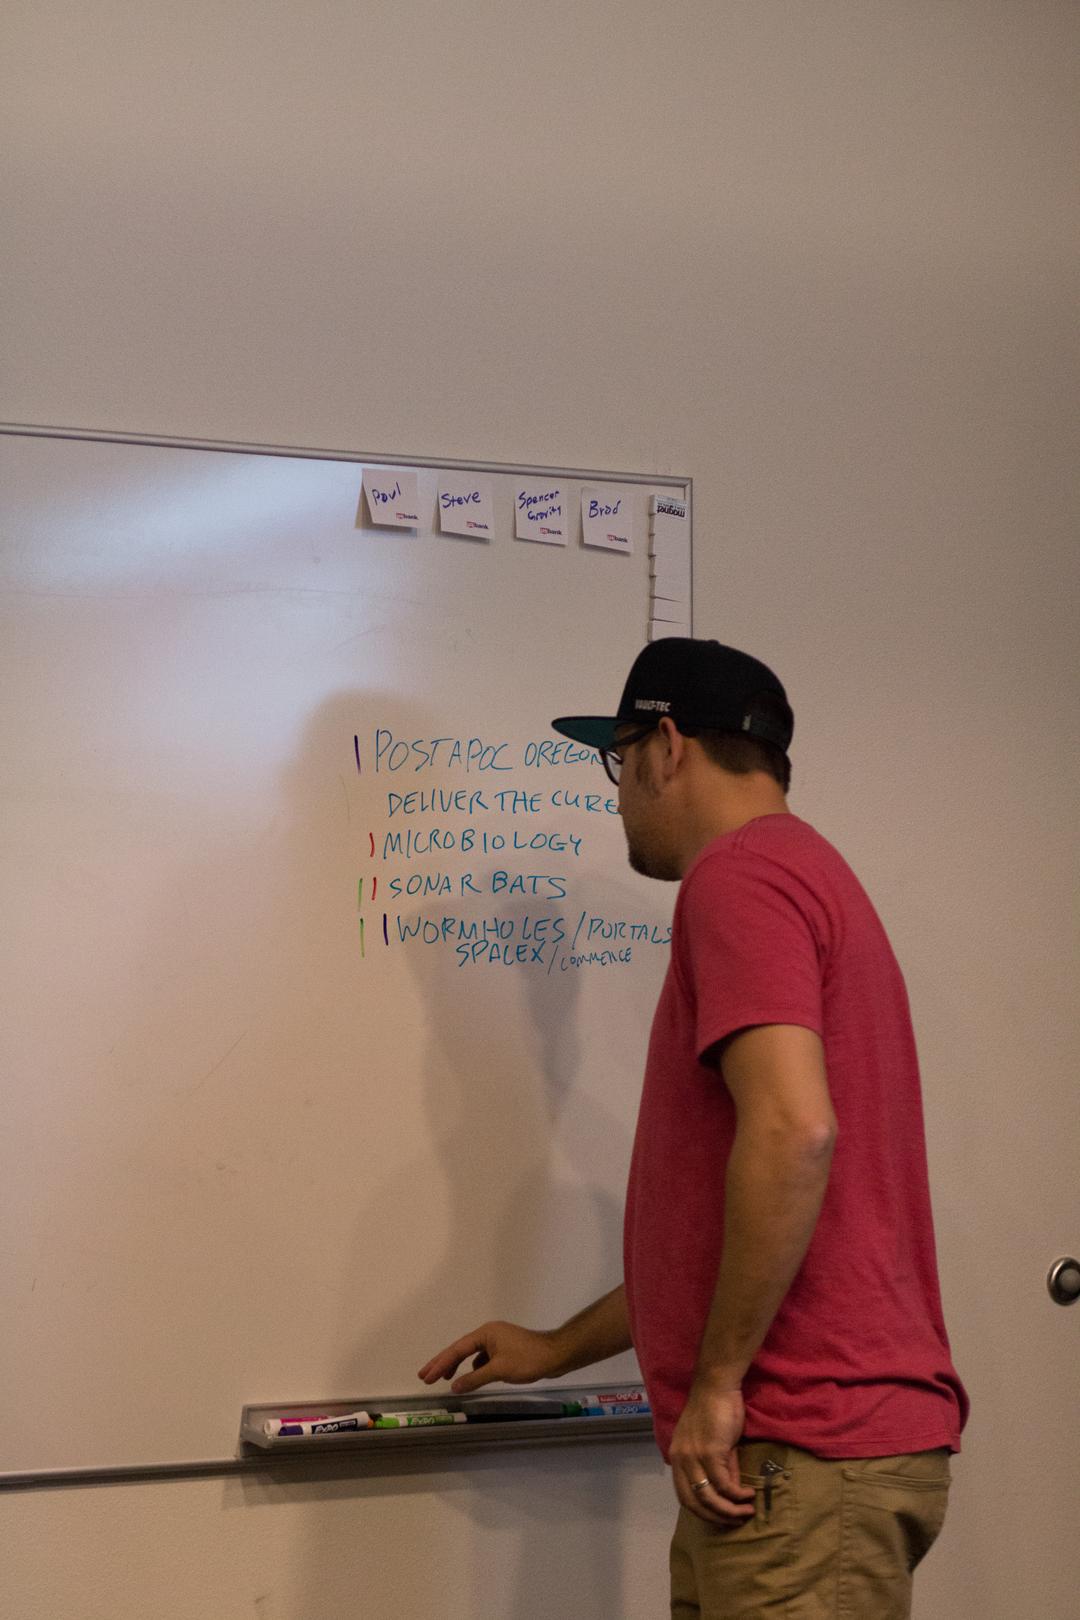 Paul
usbank
Steve
usbank
Spencer
Gravity
usbank
Brad
usbank
magnet
VAULT-TEC
POSTAPOC OREGON
DELIVER THE CURE
MICROBIOLOGY
SONAR BATS
WORMHOLES/PORTALS
SPALEX/COMMENCE
EXPO
EXPO
EXPO
EXPO